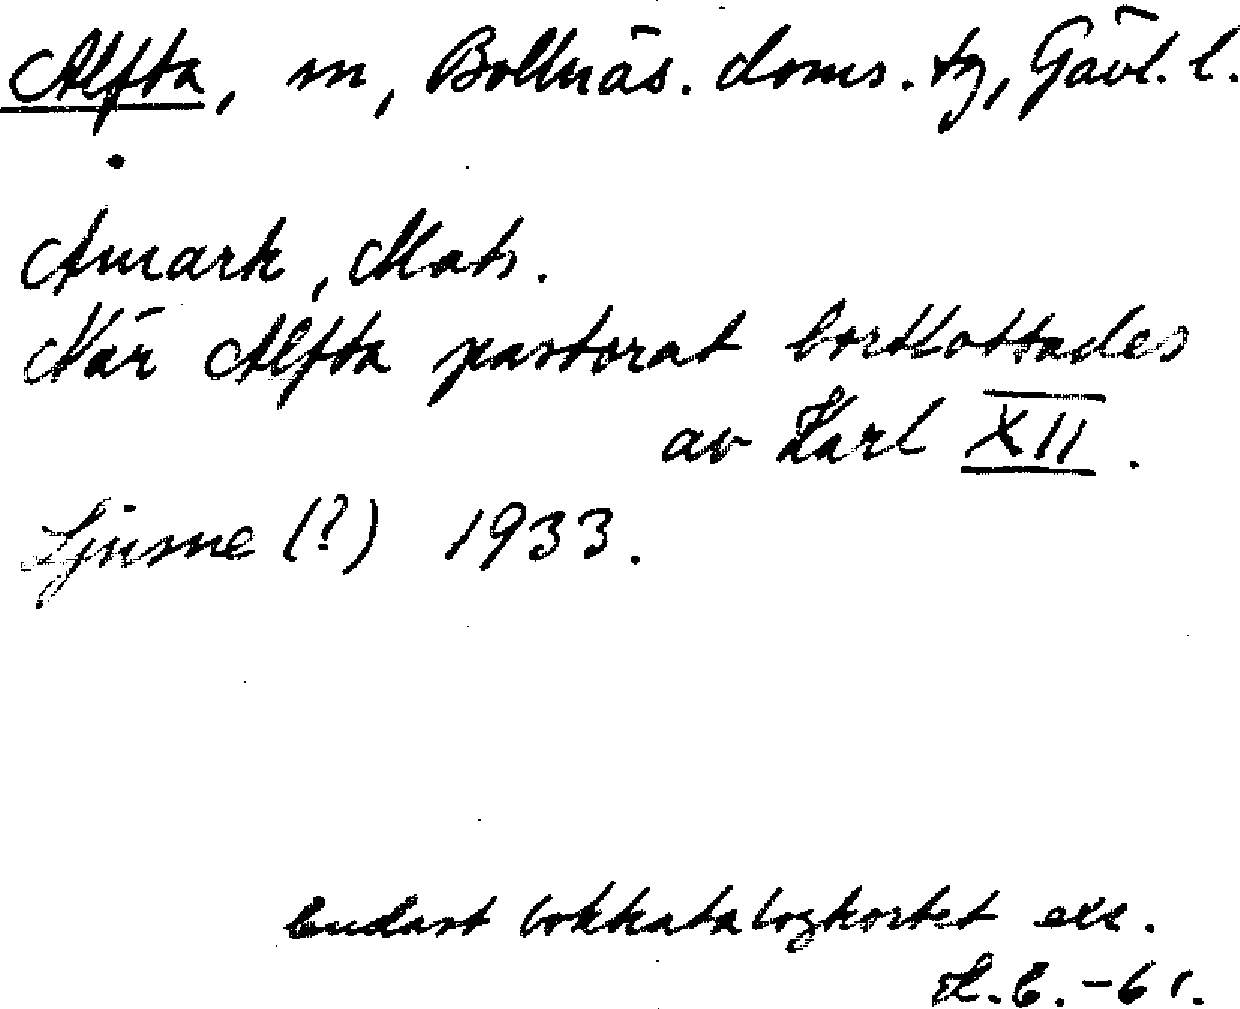 Alfta, sn, Bollnäs. doms. tg, Gävl. l.
Åmark, Mats.
När Alfta pastorat bortkottades
av Karl XII.
Ljusne (?) 1933.
Endast bokkatalogkortet exc.
L.E. -61.